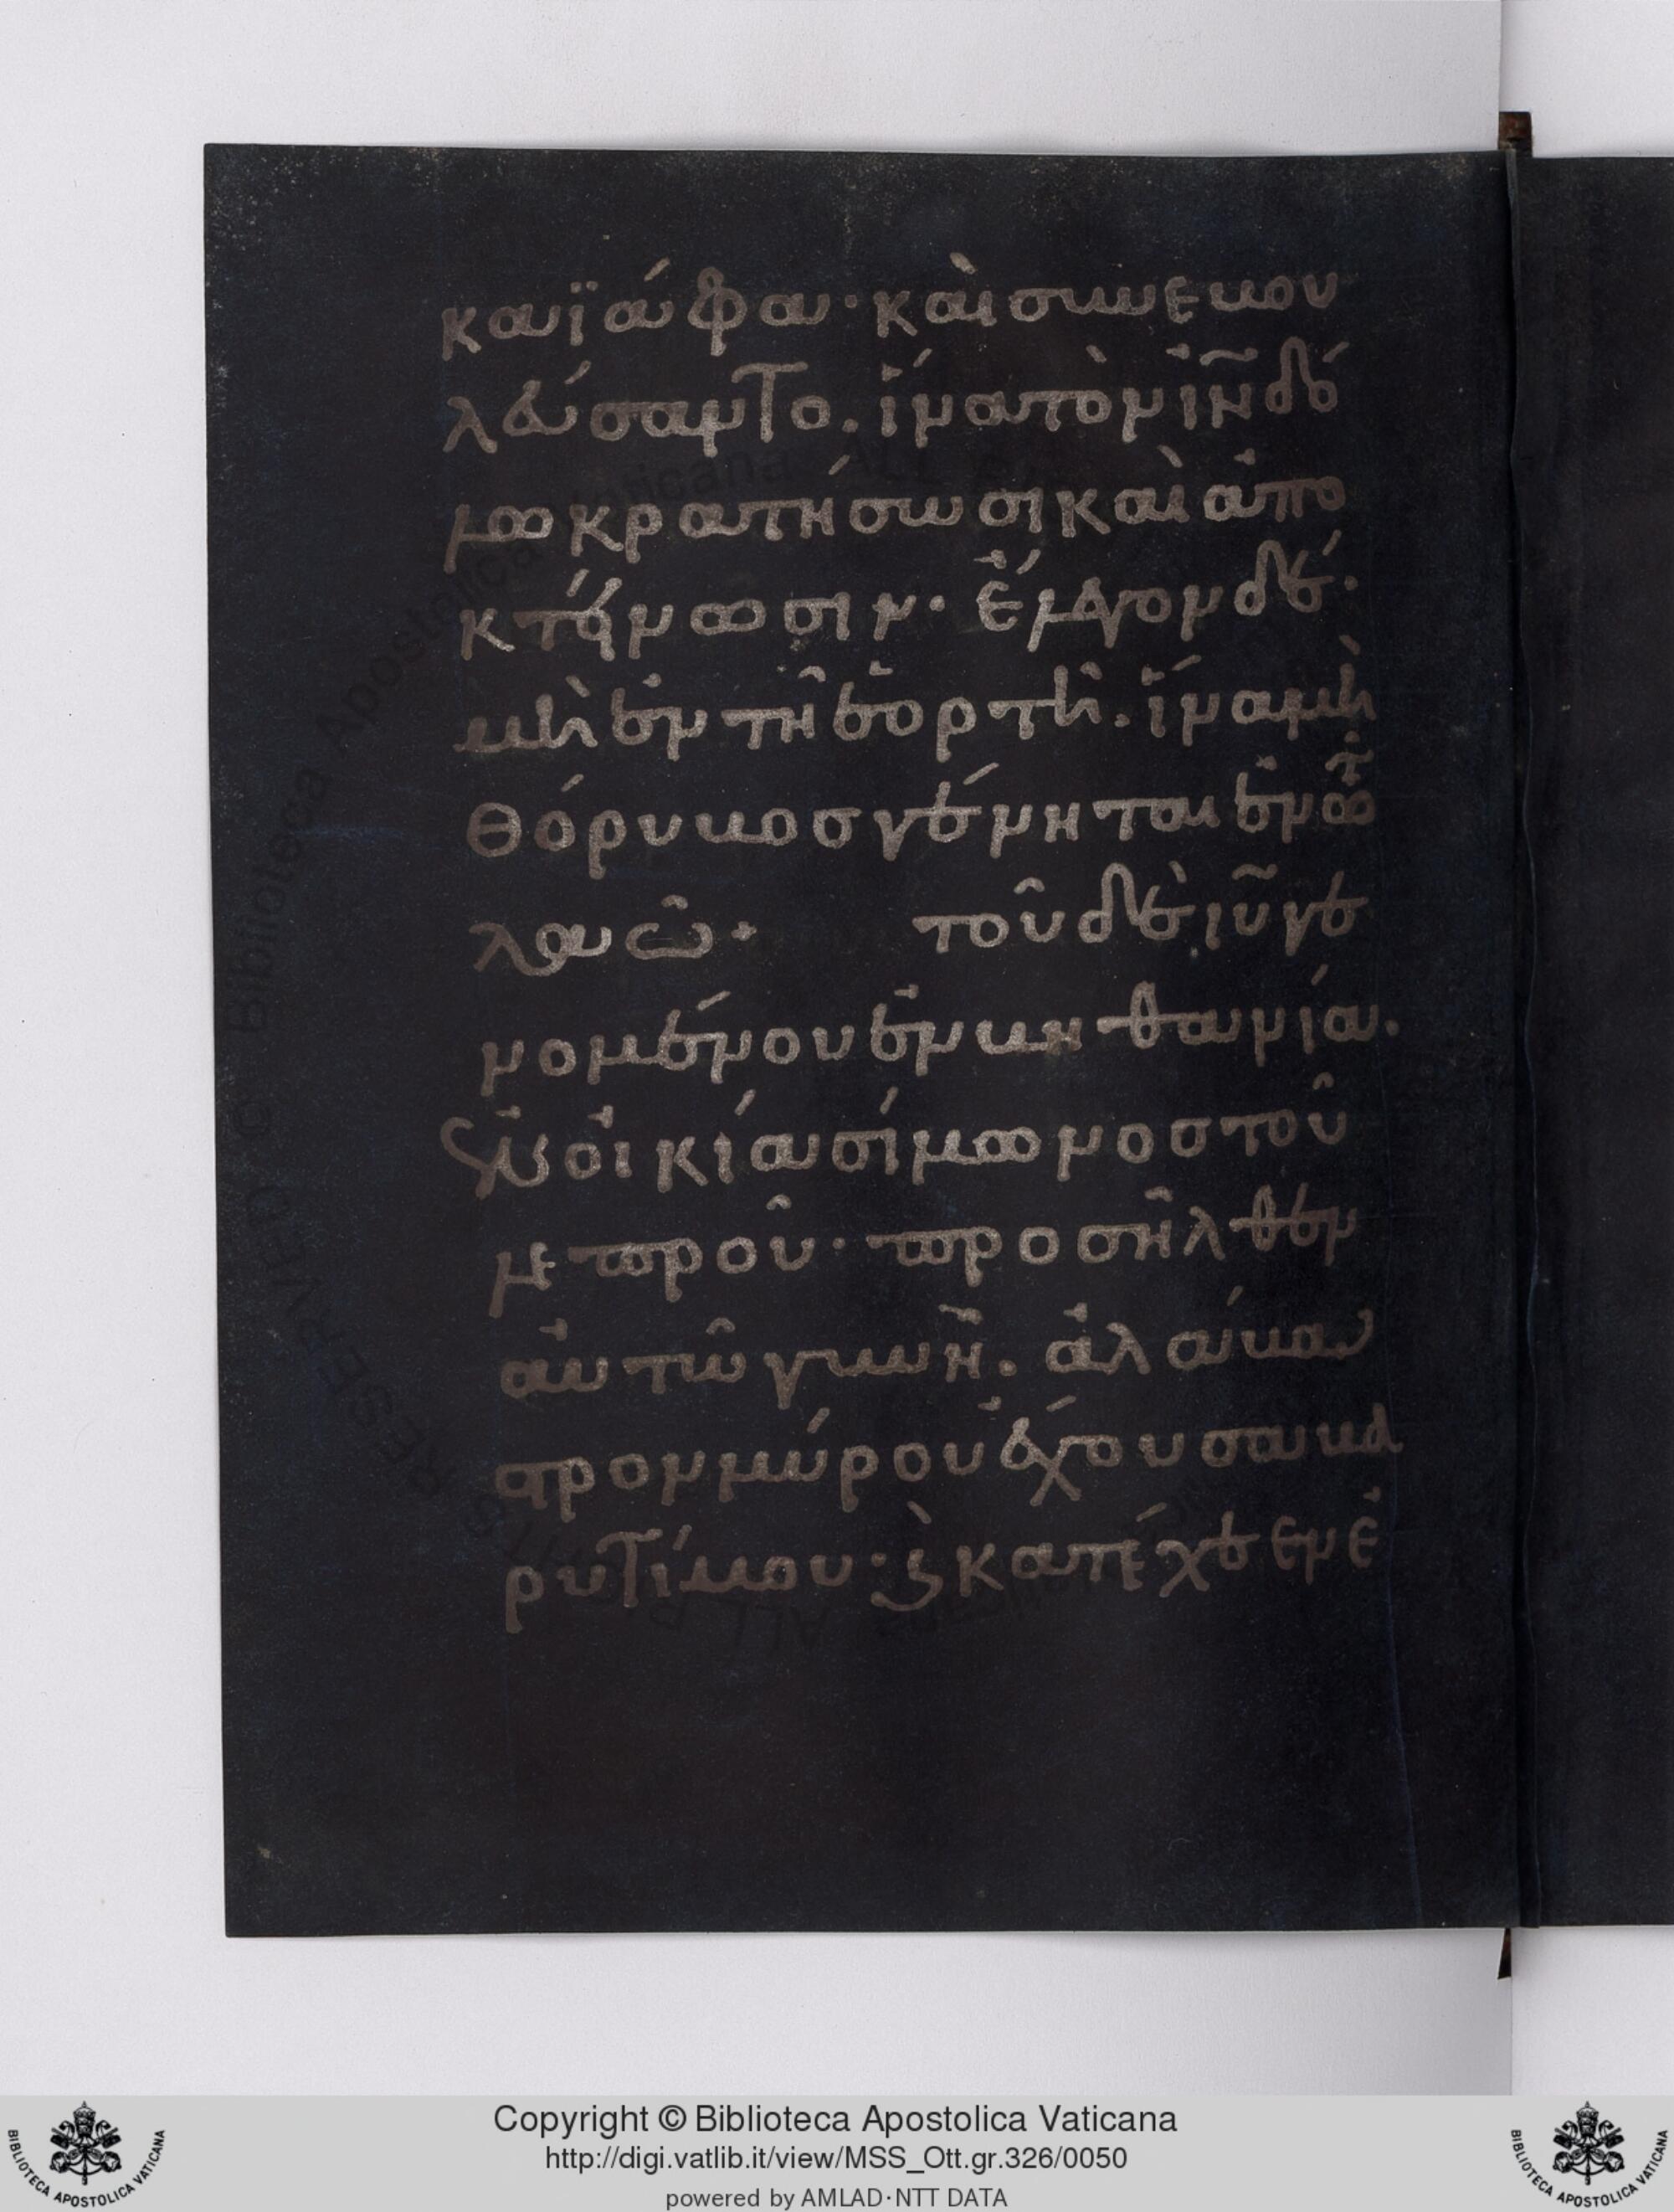 καϊάφα· καὶ συνεβου
λεύσαντο. ἵνα τὸν ιν̅ δό
λω κρατήσωσι καὶ ἀπο
κτείνωσιν· ἔλεγον δέ·
μὴ ἐν τῆ ἑορτῆ. ἵνα μὴ
θόρυβοσ γένηται ἐν τῶ
λαῶ· τοῦ δὲ ιυ̅ γε
νομένου ἐν βηθανία.
ἐν οἰκία σίμωνοσ τοῦ
λεπροῦ· προσῆλθεν
αὐτῶ γυνὴ. ἀλάβα
στρον μύρου ἔχουσα βα
ρυτίμου· ϗ κατέχεεν ἐ
Copyright © Biblioteca Apostolica Vaticana
http://digi.vatlib.it/view/MSS_Ott.gr.326/0050
powered by AMLAD·NTT DATA